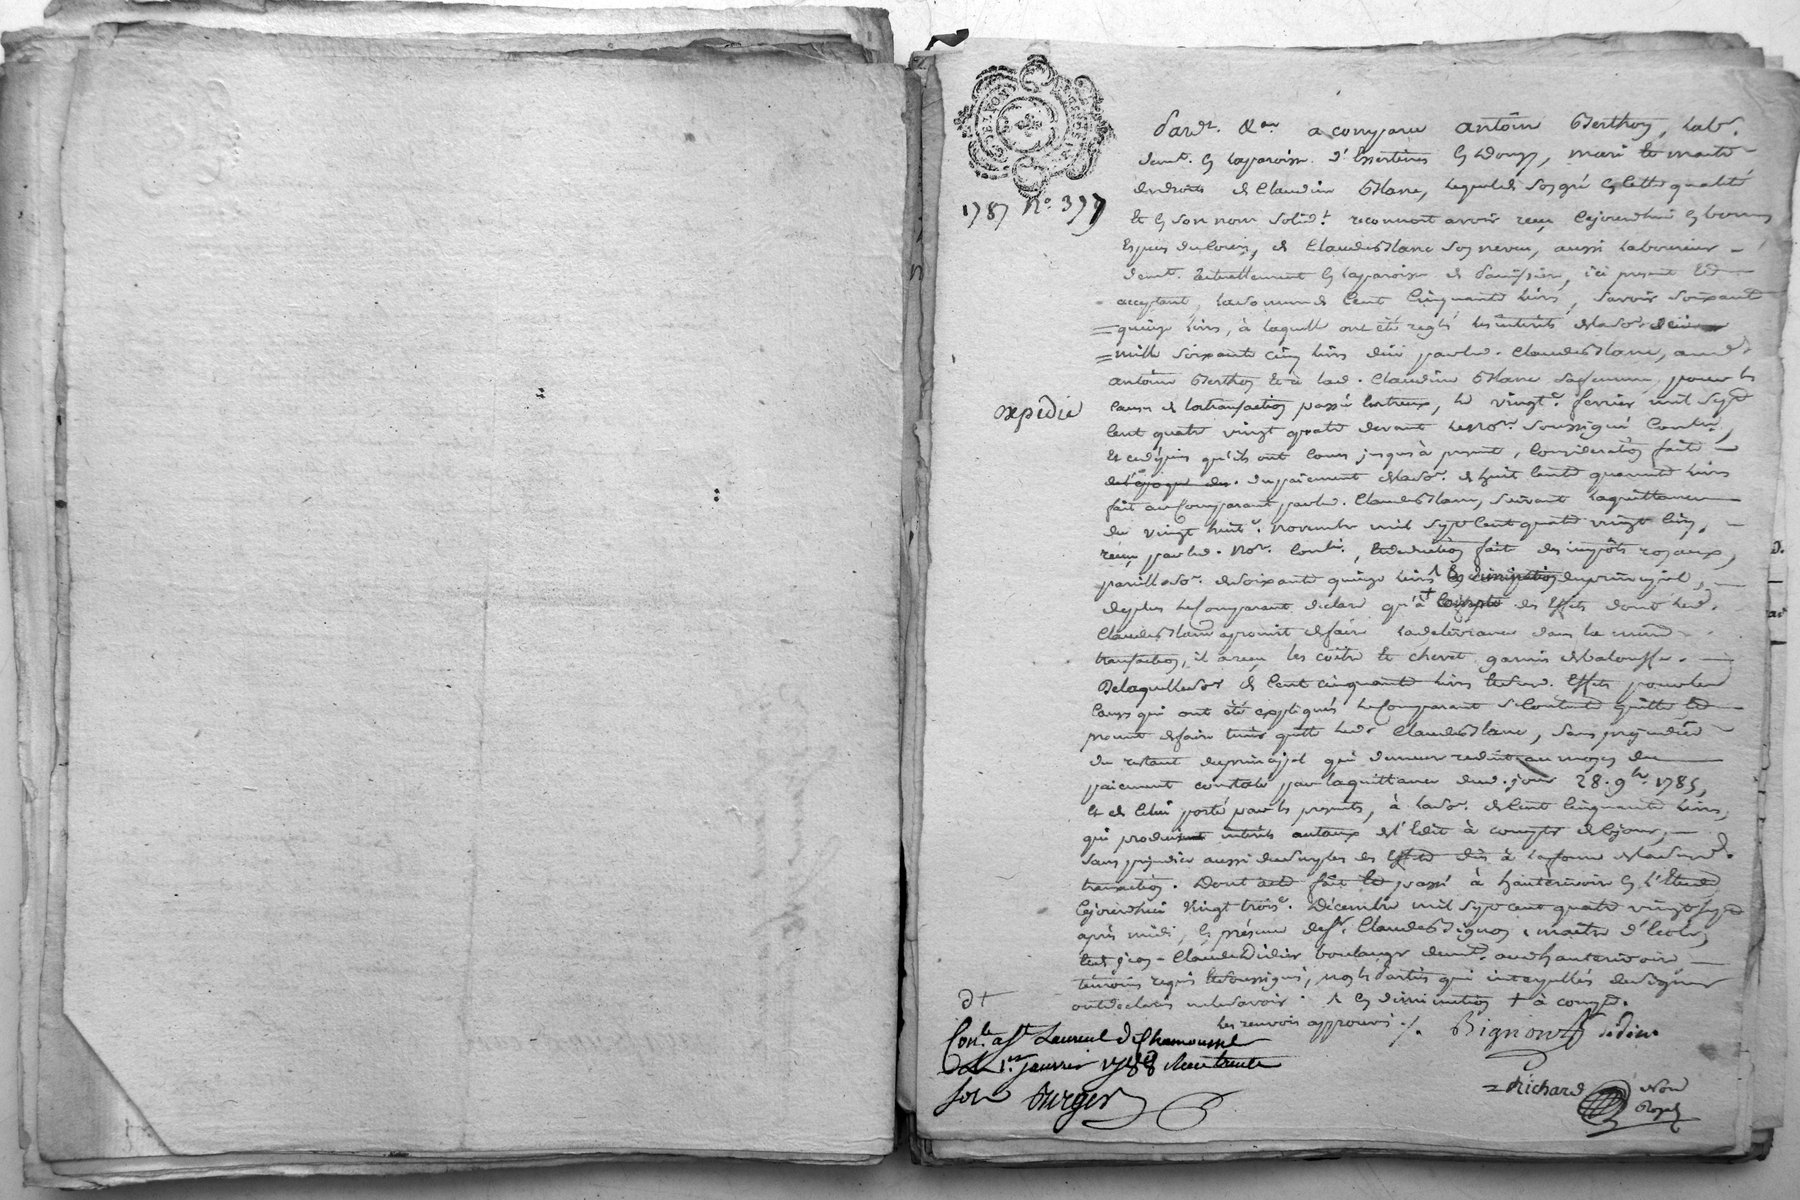 DE LYON
1787 N.o 377
expédié
Pardt. &a. a comparu Antoine Berthoy, lab.
demt. en la paroisse d'Essertines en Donzy, mari et maitre
des droits de Claudine Blanc, lequel de son gré en cette qualité
et en son nom solidt. reconnoit avoir reçu cejourd'hui en bonnes
especes du cours, de Claude Blanc son neveu, aussi laboureur
demt. actuellement en la paroisse de Panissiere, ici present et
acceptant, la somme de cent cinquante livres, savoir soixante
quinze livres, à laquelle ont été reglés les interets de la so. de
mille soixante cinq livres due par led. Claude Blanc, aud.
Antoine Berthoy et à lad. Claudine Blanc sa femme, pour les
causes de la transaction passée entr'eux, le vingte. fevrier mil sept
cent quatre vingt quatre devant le nore. soussigné Contlée,
et ce depuis qu'ils ont cours jusques à present, consideration faite
de l'epoque du payement de la so. de huit cents quarante livres
fait au comparant par led. Claude Blanc, suivant la quittance
du vingt huite. novembre mil sept cent quatre vingt cinq,
reçue par led. nore. Contlée, et deduction faite des impôts royaux,
pareille so. de soixante quinze livres en diminution du principal,
de plus le comparant declare qu'à compte des effets dont led.
Claude Blanc a promit de faire la delivrance dans la même
transaction, il a reçu les coître et chevet garnis de balouffe.
De laquelle so. de cent cinquante livres et desd. effets pour les
causes qui ont été expliquées le comparant se contente quitte et
promet de faire tenir quitte led. Claude Blanc, sans prejudice
du restant du principal qui demeure reduit au moyen du
paiement constaté par la quittance dud. jour 28. 9bre. 1785,
et de celui porté par les presentes, à la so. de cent cinquante livres,
qui produisent interets au taux de l'Edit à compter de ce jour,
sans prejudice aussi du surplus des effets dûs à la forme de la susd.
transaction. Dont acte fait et passé à hauterivoire en l'Etude
cejourd'hui vingt troise. Décembre mil sept cent quatre vingt sept
après midi, en présence de sr. Claude Bignon, maitre d'école,
et de Claude Didier boulanger demt. aud hauterivoire
temoins requis et soussignés, non les parties qui interpellées de signer
ont declarés ne le savoir. en diminution + à compte.
les renvois approuvés ./. Bignon Didier
Conlé. a St Laurent de Chamousset
Le 1er. janvier 1788 Reçu trente
sols Durger
Richard Nore
Royal